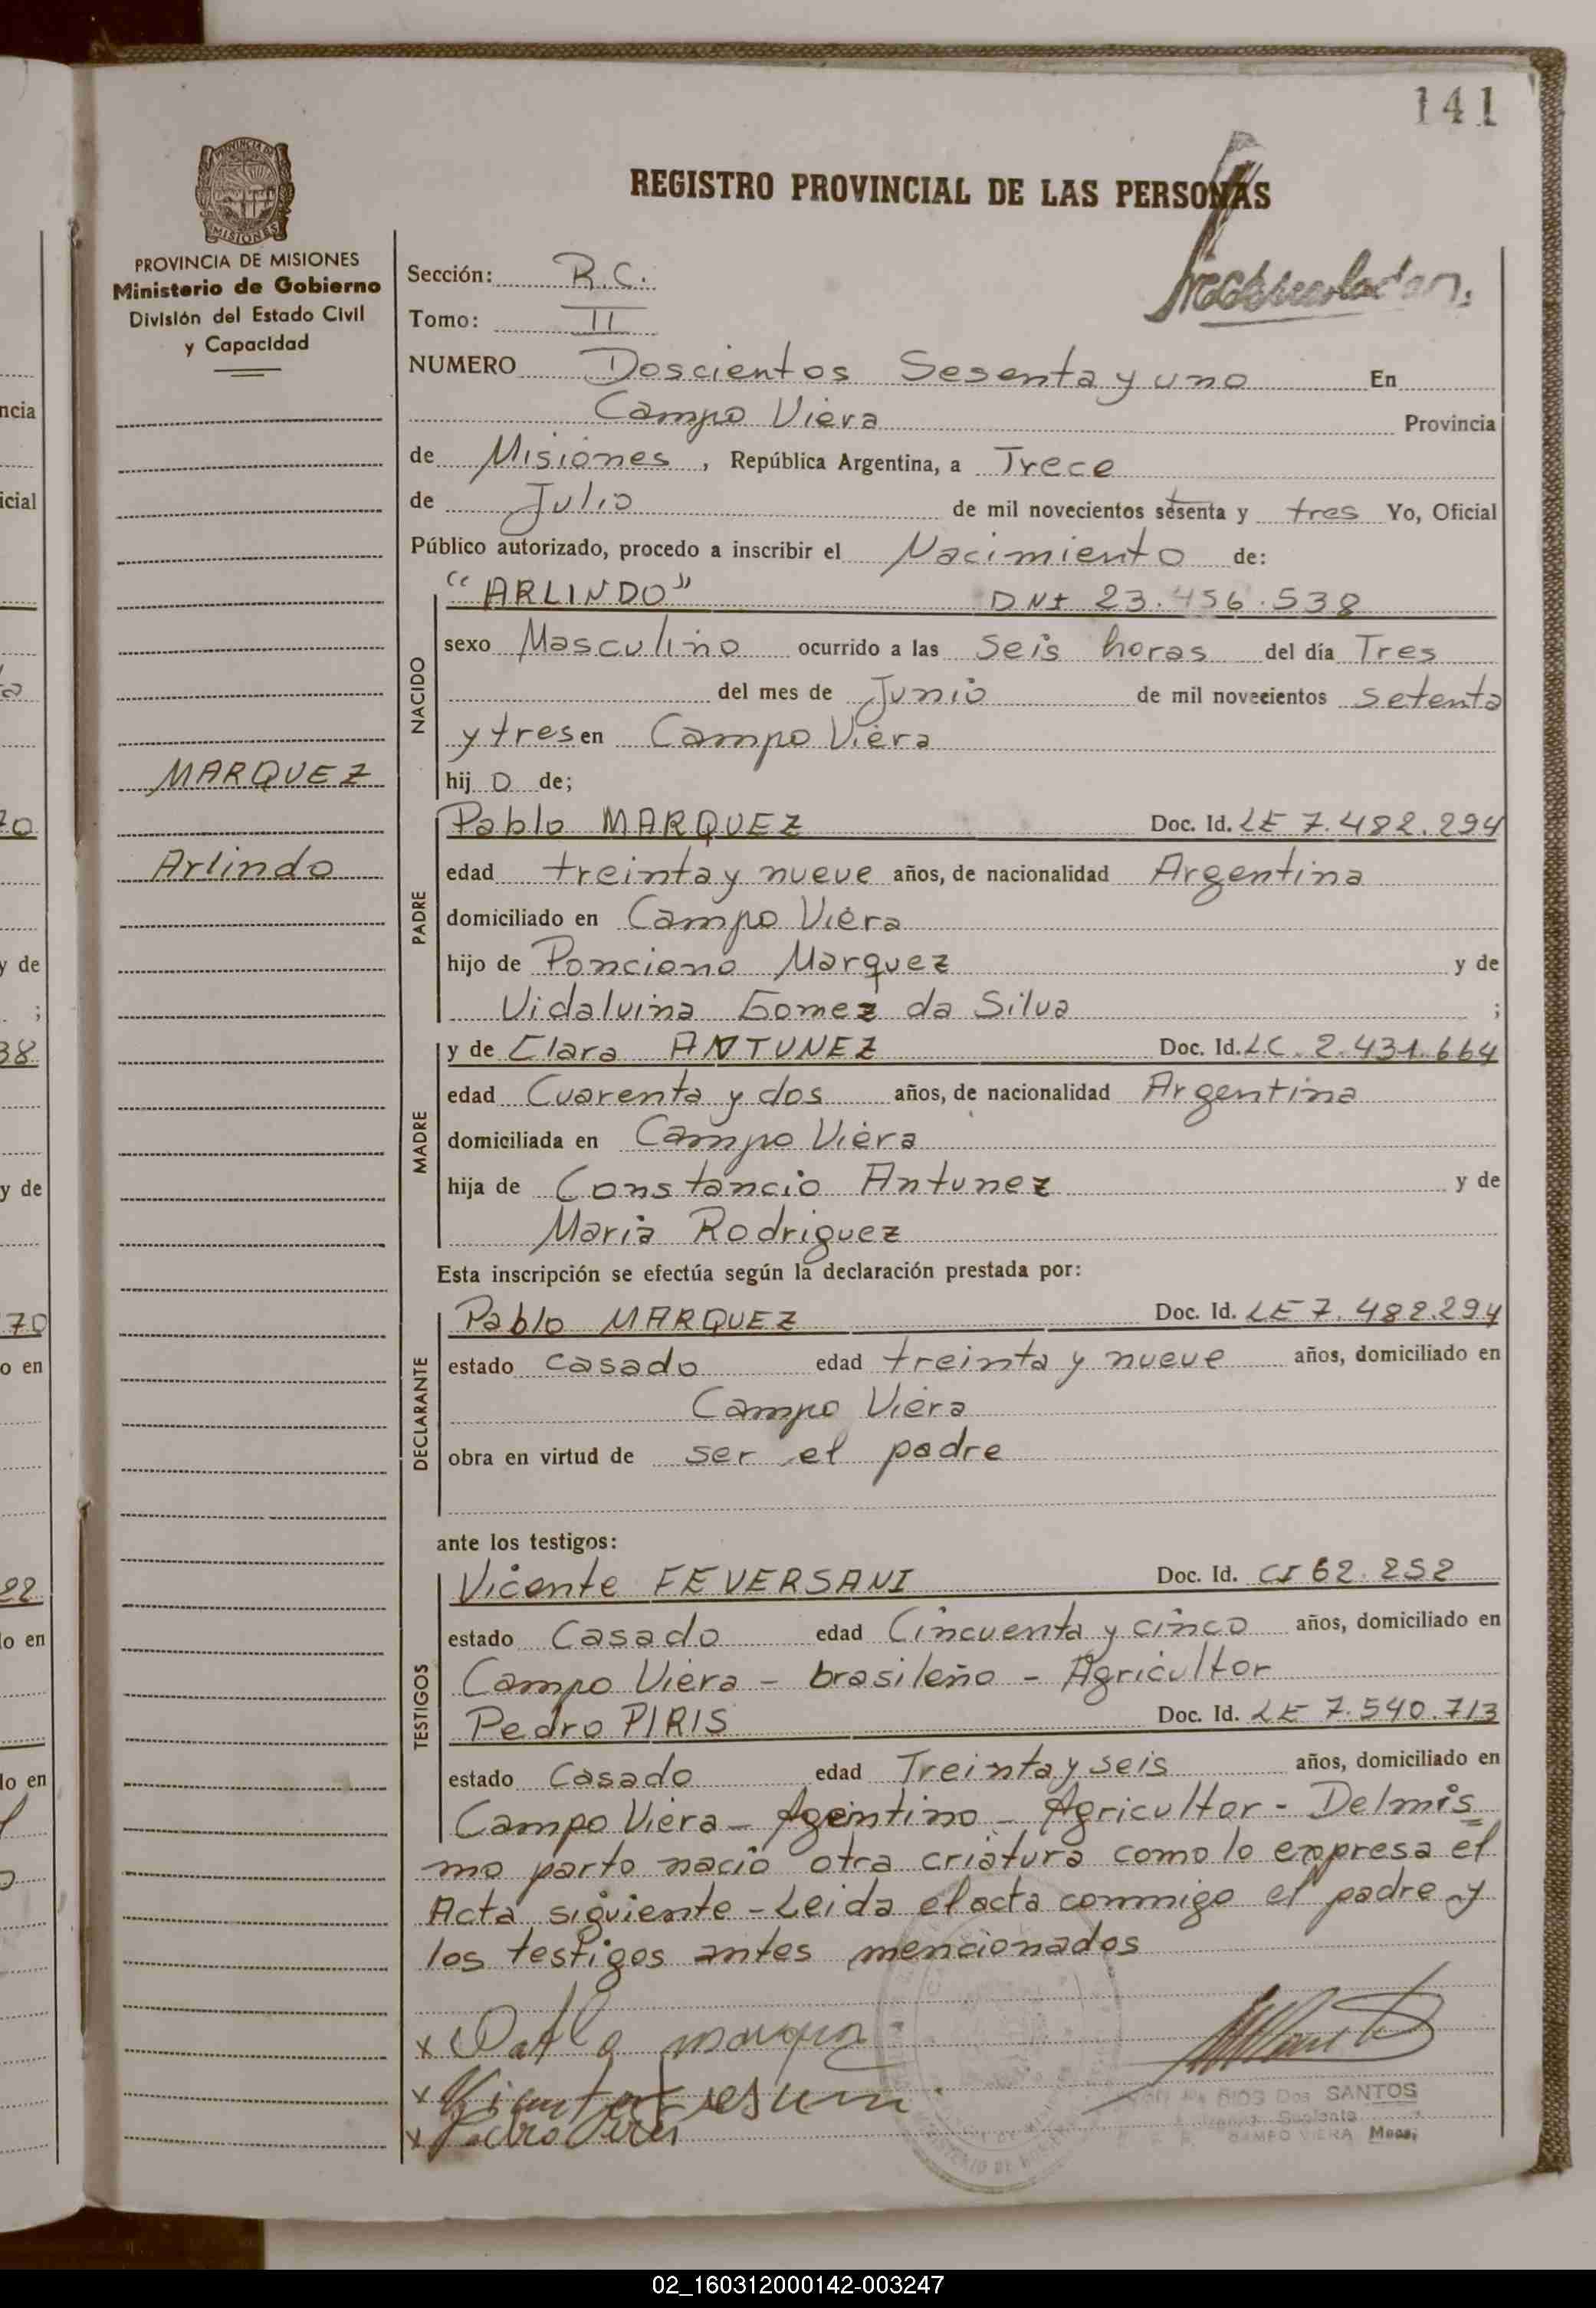 141
REGISTRO PROVINCIAL DE LAS PERSONAS
PROVINCIA DE MISIONES
Ministerio de Gobierno
División del Estado Civil
y Capacidad
MARQUEZ
Arlindo
Sección: R.C.
Tomo: II
NUMERO Doscientos Sesenta y uno En
Campo Viera Provincia
de Misiones, República Argentina, a Trece
de Julio de mil novecientos sesenta y tres Yo, Oficial
Público autorizado, procedo a inscribir el Nacimiento de:
NACIDO
"ARLINDO" DNI 23.456.538
sexo Masculino ocurrido a las Seis horas del día Tres
del mes de Junio de mil novecientos setenta
y tres en Campo Viera
hij o de;
PADRE
Pablo MARQUEZ Doc. Id. LE 7.482.294
edad treinta y nueve años, de nacionalidad Argentina
domiciliado en Campo Viera
hijo de Ponciano Marquez y de
Vidalvina Gomez da Silva ;
MADRE
y de Clara ANTUNEZ Doc. Id. LC. 2.431.664
edad Cuarenta y dos años, de nacionalidad Argentina
domiciliada en Campo Viera
hija de Constancio Antunez y de
Maria Rodriguez
Esta inscripción se efectúa según la declaración prestada por:
DECLARANTE
Pablo MARQUEZ Doc. Id. LE 7.482.294
estado casado edad treinta y nueve años, domiciliado en
Campo Viera
obra en virtud de ser el padre
ante los testigos:
TESTIGOS
Vicente FEVERSANI Doc. Id. CI 62.252
estado Casado edad Cincuenta y cinco años, domiciliado en
Campo Viera - brasileño - Agricultor
Pedro PIRIS Doc. Id. LE 7.540.713
estado Casado edad Treinta y seis años, domiciliado en
Campo Viera - Agentino - Agricultor - Del mis
mo parto nacio otra criatura como lo expresa el
Acta siguiente - Leida el acta conmigo el padre y
los testigos antes mencionados
Dos SANTOS
Suplente
CAMPO VIERA
02_160312000142-003247